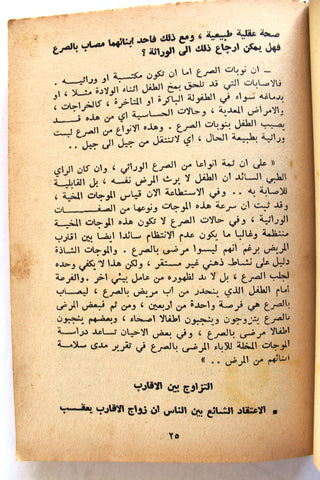 صحة عقلية طبيعية ، ومع ذلك فاحد ابنائهما مصاب بالصرع
فهل يمكن ارجاع ذلك الى الوراثة ؟
ـ ان نوبات الصرع اما ان تكون مكتسبة او وراثيــه .
فالاصابات التي قد تلحق بمخ الطفل أثناء الولادة مثــلا ، او
بدماغه سواء في الطفولة الباكرة او المتاخرة ، كالخراجات ،
والامراض المعدية ، وحالات الحساسية أي من هذه قـــد
يصيب الطفل بنوبات الصرع . وهذه الانواع من الصرع ليست
وراثية بطبيعة الحال ، اي لاتنتقل من جيل الى جيل ..
« على ان ثمة انواعا من الصرع الوراثي ، وان كان الراي
الطبي السائد ان الطفل لا يرث المرض نفسه ، بل القابلية
للاصابة به .. وفي الاستطاعة الان قياس الموجات المخية ،
وقد ثبت ان سرعة هذه الموجات ونوعها من الصفــات
الوراثية ، وفي حالات الصرع لا تكون هذه الموجات المخية
منتظمة وغالبا ما يكون عدم الانتظام سائدا ايضا بين اقارب
المريض برغم انهم ليسوا مرضى بالصرع .. وهذا في ذاته
دليل على نشاط ذهني غير مستقر ، ولكن هذا لا يكفي وحده
لجلب الصرع ، بل لا بد لظهوره من عامل بيئي اخر . والفرصة
امام الطفل الذي ينحدر من اب مريض بالصرع ، ليصاب
بالصرع هي فرصة واحدة من اربعين ، ومن ثم فبعض المرضى
بالصرع يتزوجون وينجبون اطفالا اصحاء ، وبعضهم ينجبون
اطفالا مرضى بالصرع ، وفي بعض الاحيان تساعد دراسة
الموجات المخلة للاباء المرضى بالصرع في تقرير مدى سلامة
ابنائهم من المرض .. »
التزاوج بين الاقارب
■ الاعتقاد الشائع بين الناس ان زواج الاقارب يعقــب
٢٥